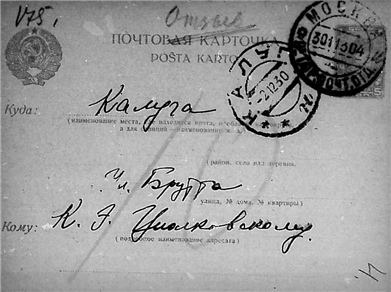 V75.
Отзыв
ПОЧТОВАЯ КАРТОЧКА
POŜTA KARTO
МОСКВА
301130 04
КАЛУГА
-2.12.30
Куда: Калуга
(наименование места, где находится почта, и области
а для станций — наименование ж. д.)
(район, село или деревня)
Ул. Брута
улица, № дома, № квартиры)
Кому: К. Э. Циолковскому.
(подробное наименование адресата)